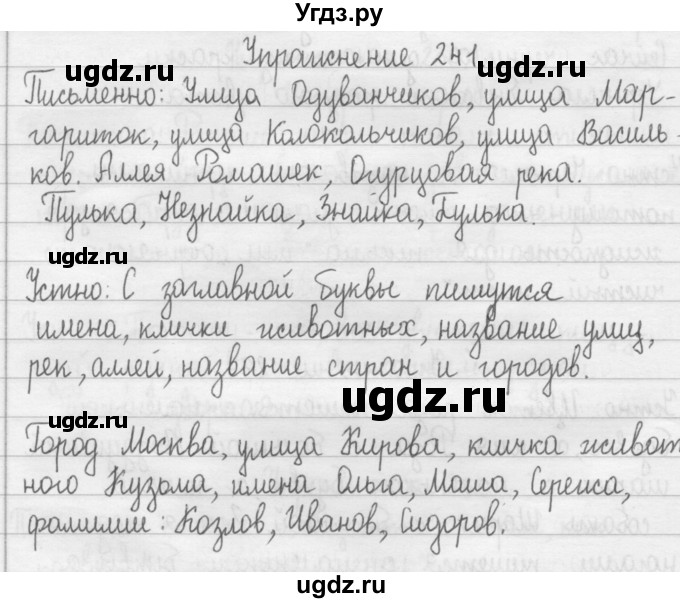 Угдз.ру
Упражнение 241
ugdz.ru
ugdz.ru
Письменно: Улица Одуванчиков, улица Мар-
гариток, улица Колокольчиков, улица Василь-
ков. Аллея Ромашек, Огурцовая река.
Пулька, Незнайка, Знайка, Булька.
ugdz.ru
ugdz.ru
Устно: С заглавной буквы пишутся
имена, клички животных, название улиц,
рек, аллей, название стран и городов.
ugdz.ru
ugdz.ru
Город Москва, улица Кирова, кличка живот
ного Кузьма, имена Ольга, Маша, Сережа,
фамилии: Козлов, Иванов, Сидоров.
ugdz.ru